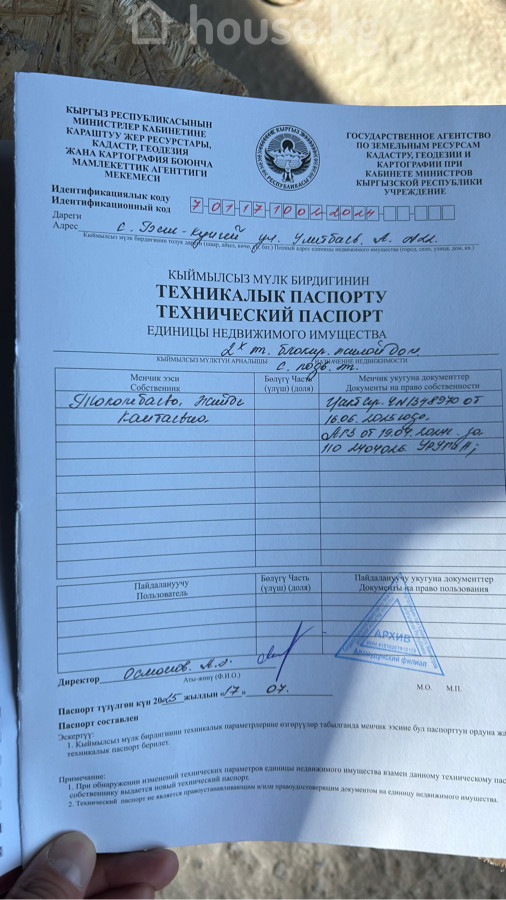 house.kg
КЫРГЫЗ РЕСПУБЛИКАСЫНЫН
МИНИСТРЛЕР КАБИНЕТИНЕ
КАРАШТУУ ЖЕР РЕСУРСТАРЫ,
КАДАСТР, ГЕОДЕЗИЯ
ЖАНА КАРТОГРАФИЯ БОЮНЧА
МАМЛЕКЕТТИК АГЕНТТИГИ
МЕКЕМЕСИ
ГОСУДАРСТВЕННОЕ АГЕНТСТВО
ПО ЗЕМЕЛЬНЫМ РЕСУРСАМ
КАДАСТРУ, ГЕОДЕЗИИ И
КАРТОГРАФИИ ПРИ
КАБИНЕТЕ МИНИСТРОВ
КЫРГЫЗСКОЙ РЕСПУБЛИКИ
УЧРЕЖДЕНИЕ
Идентификациялык коду
Идентификационный код 7-01-17-1002-2024
Дареги
Адрес с. ул. А.
КЫЙМЫЛСЫЗ МҮЛК БИРДИГИНИН
ТЕХНИКАЛЫК ПАСПОРТУ
ТЕХНИЧЕСКИЙ ПАСПОРТ
ЕДИНИЦЫ НЕДВИЖИМОГО ИМУЩЕСТВА
2х эт. блокир. жилой дом
КЫЙМЫЛСЫЗ МҮЛКТҮН АРНАЛЫШЫ НАЗНАЧЕНИЕ НЕДВИЖИМОСТИ
с подв. эт.
Менчик ээси
Собственник
Бөлүгү Часть
(үлүш) (доля)
Менчик укугуна документтер
Документы на право собственности
от
16.06.2025 года
от 19.04.2024г. за
Пайдалануучу
Пользователь
Бөлүгү Часть
(үлүш) (доля)
Пайдалануу укугуна документтер
Документы на право пользования
АРХИВ
филиал
Директор Осмонов А.
Аты-жөнү (Ф.И.О.)
М.О. М.П.
Паспорт түзүлгөн күн 2025 жылдын «17» 07.
Паспорт составлен
Эскертүү:
1. Кыймылсыз мүлк бирдигинин техникалык параметрлерине өзгөрүүлөр табылганда менчик ээсине бул паспорттун ордуна
техникалык паспорт берилет.
Примечание:
1. При обнаружении изменений технических параметров единицы недвижимого имущества взамен данному техническому
собственнику выдается новый технический паспорт.
2. Технический паспорт не является правоустанавливающим и/или правоудостоверяющим документом на единицу недвижимого имущества.